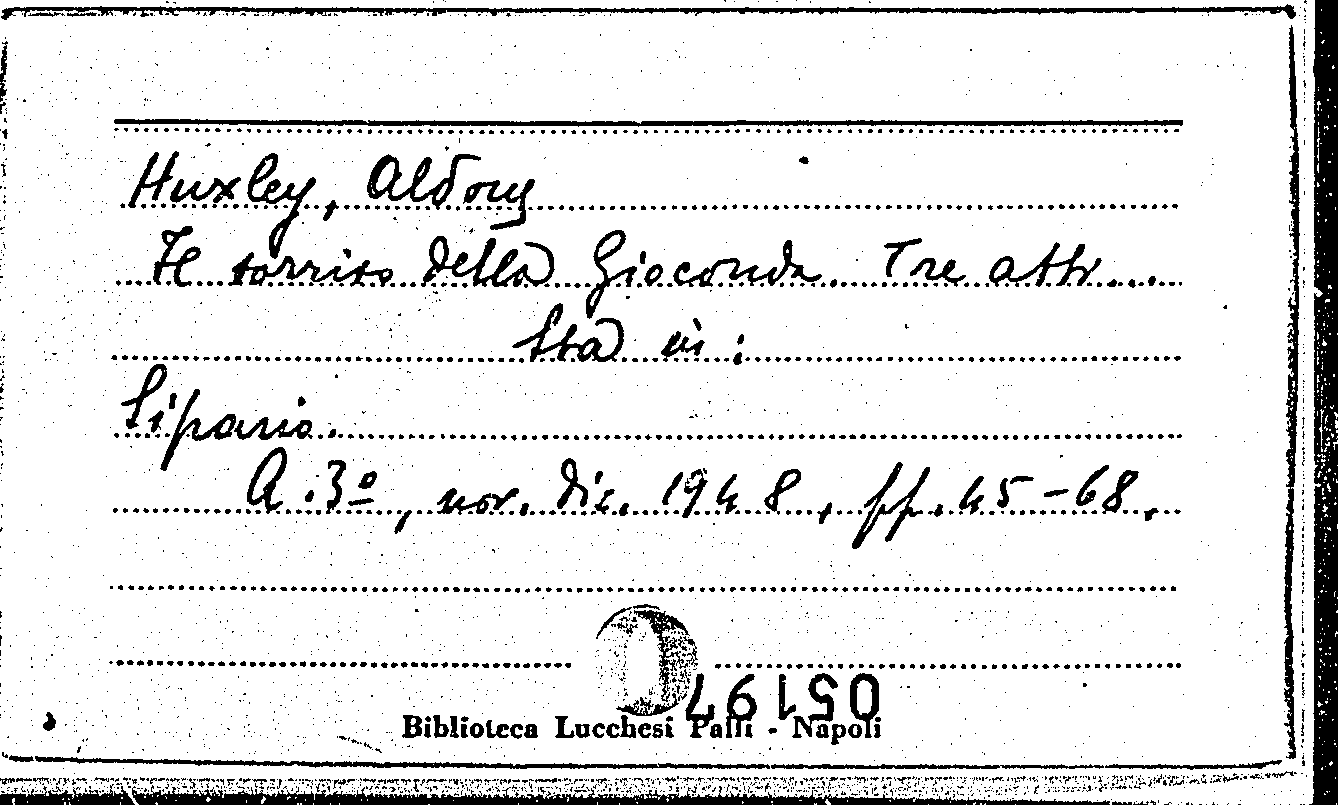 Huxley, Aldous
Il sorriso della Gioconda. Tre atti...
Sta in:
Sipario.
A. 3º, nov. dic. 1948, pp. 45-68.
051197
Biblioteca Lucchesi Palli - Napoli